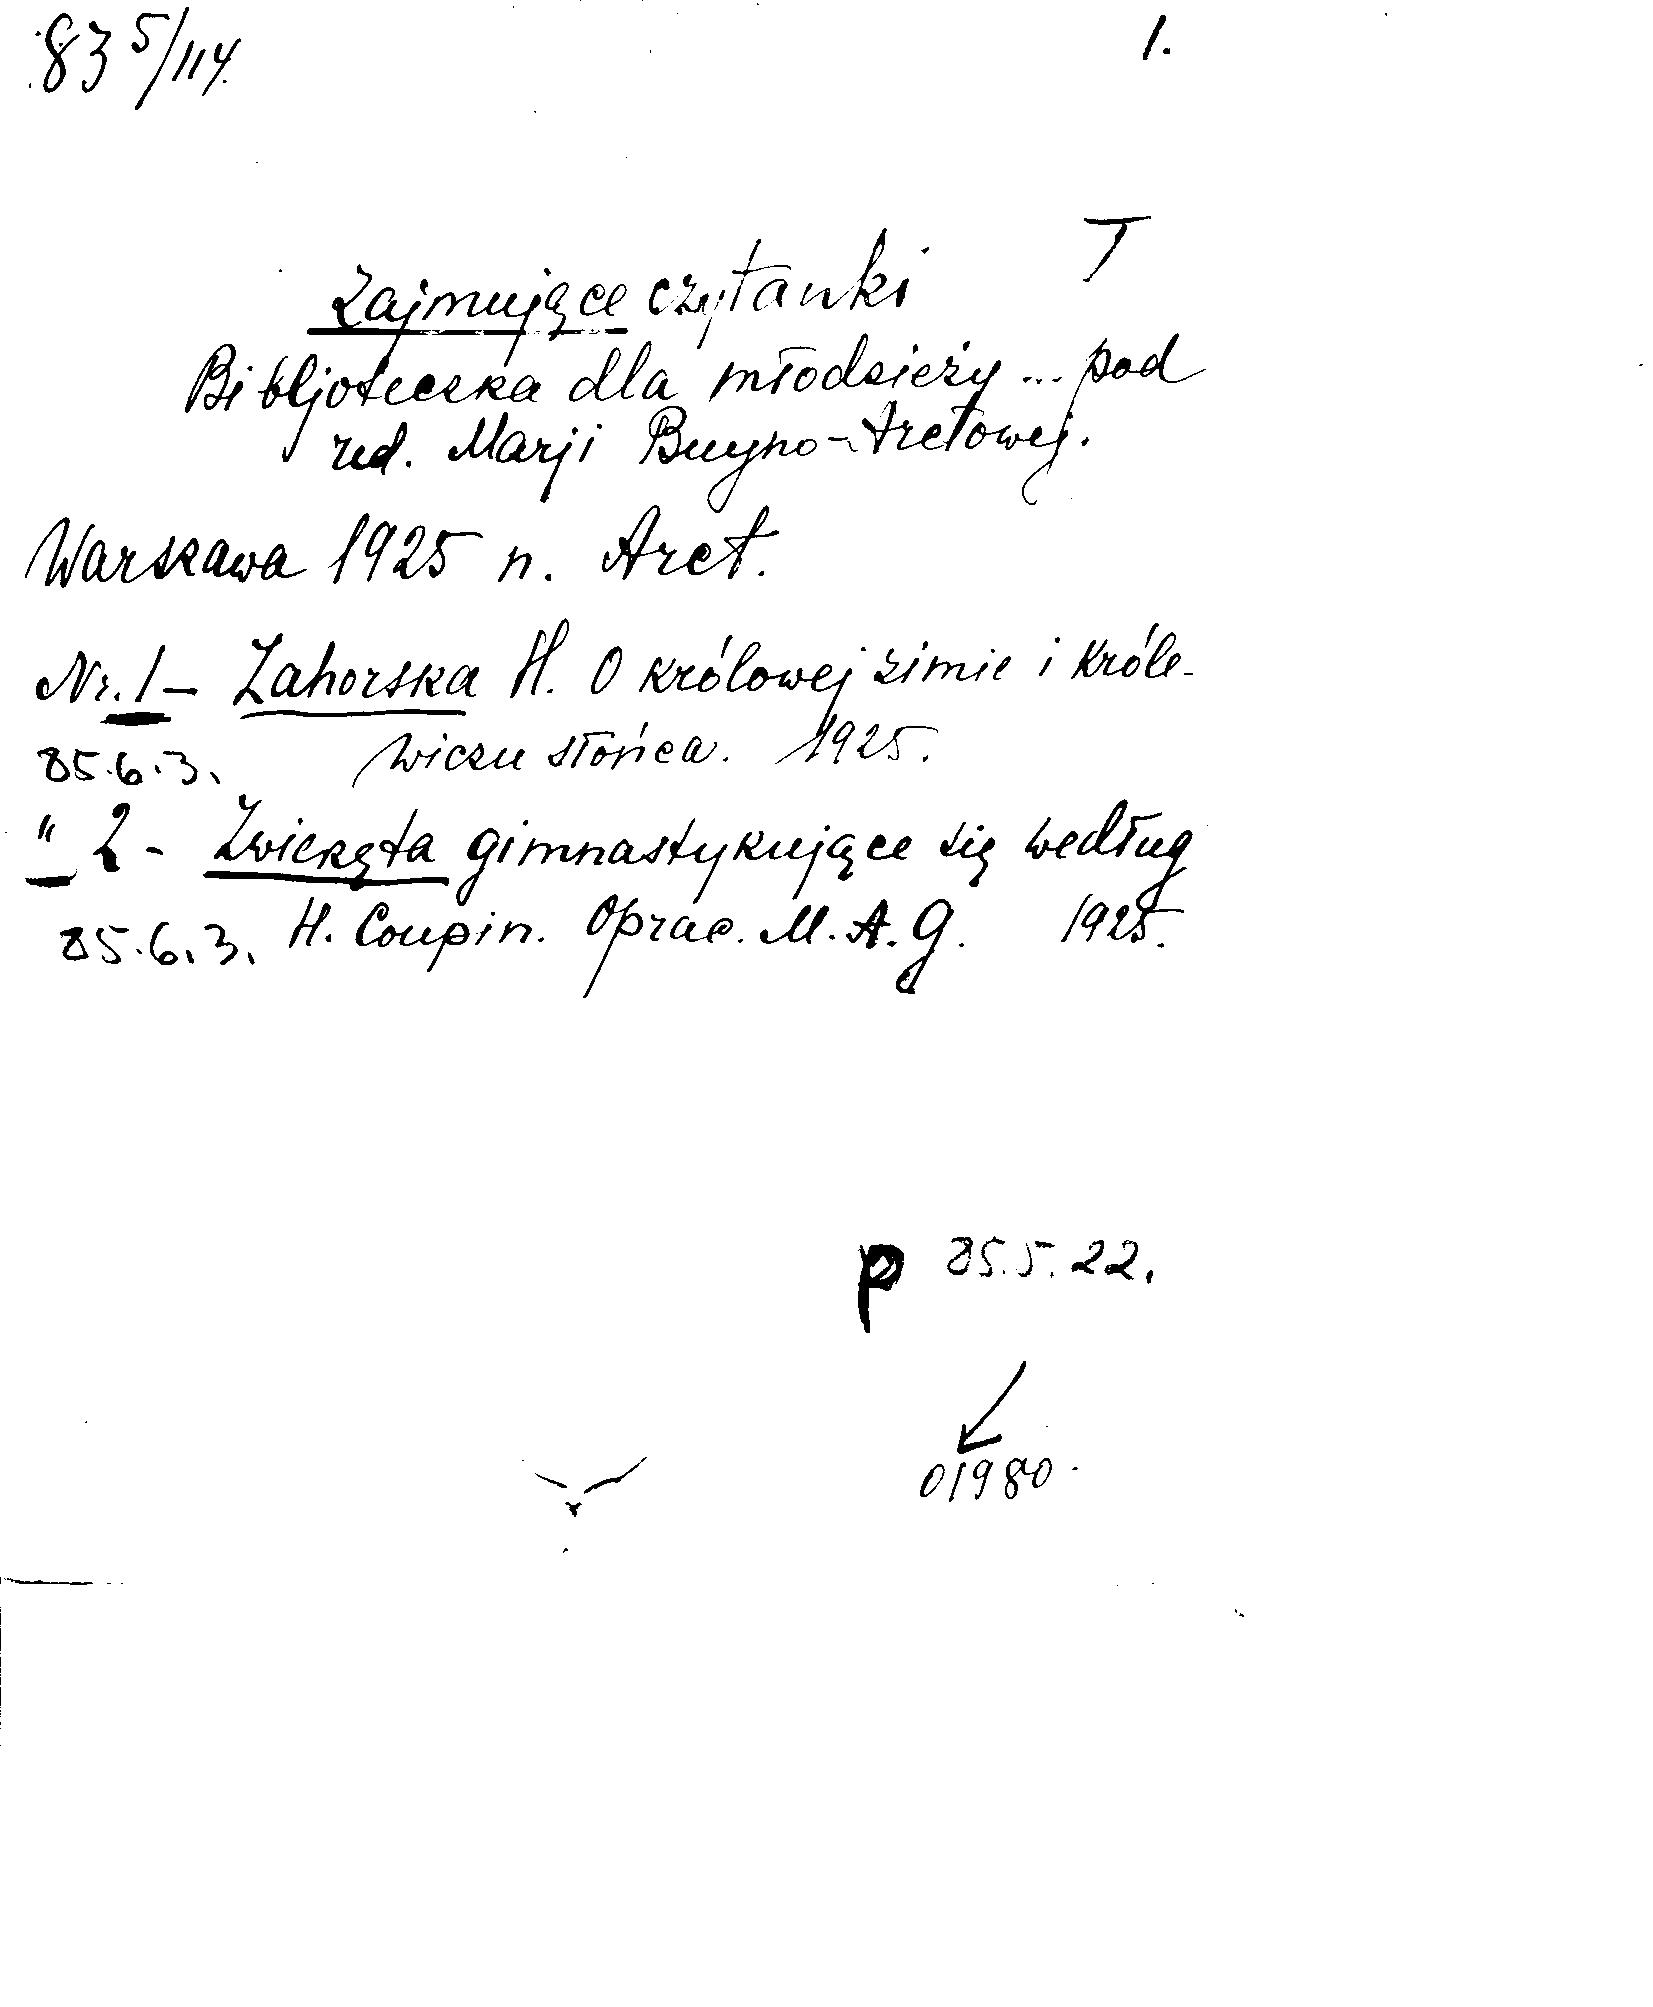 83 5/114.
1.
T
Zajmujące czytanki
Bibljoteczka dla młodzieży ... pod
red. Marji Buyno-Arctowej.
Warszawa 1925 n. Arct.
Nr. 1 - Zahorska H. O królowej zimie i króle-
wiczu słońca. 1925.
85.6.3.
" 2 - Zwierzęta gimnastykujące się według
H. Coupin. Oprac. M. A. G. 1925.
85.6.3.
p 85.5.22.
01980.